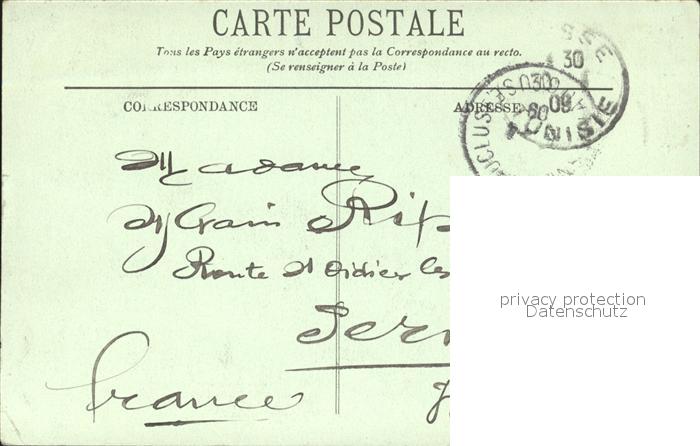 CARTE POSTALE
Tous les Pays étrangers n'acceptent pas la Correspondance au recto.
(Se renseigner à la Poste)
CORRESPONDANCE
ADRESSE
TUNISIE
30
09
Madame
Sylvain Rip
Route St Didier les
Ser
France
privacy protection
Datenschutz